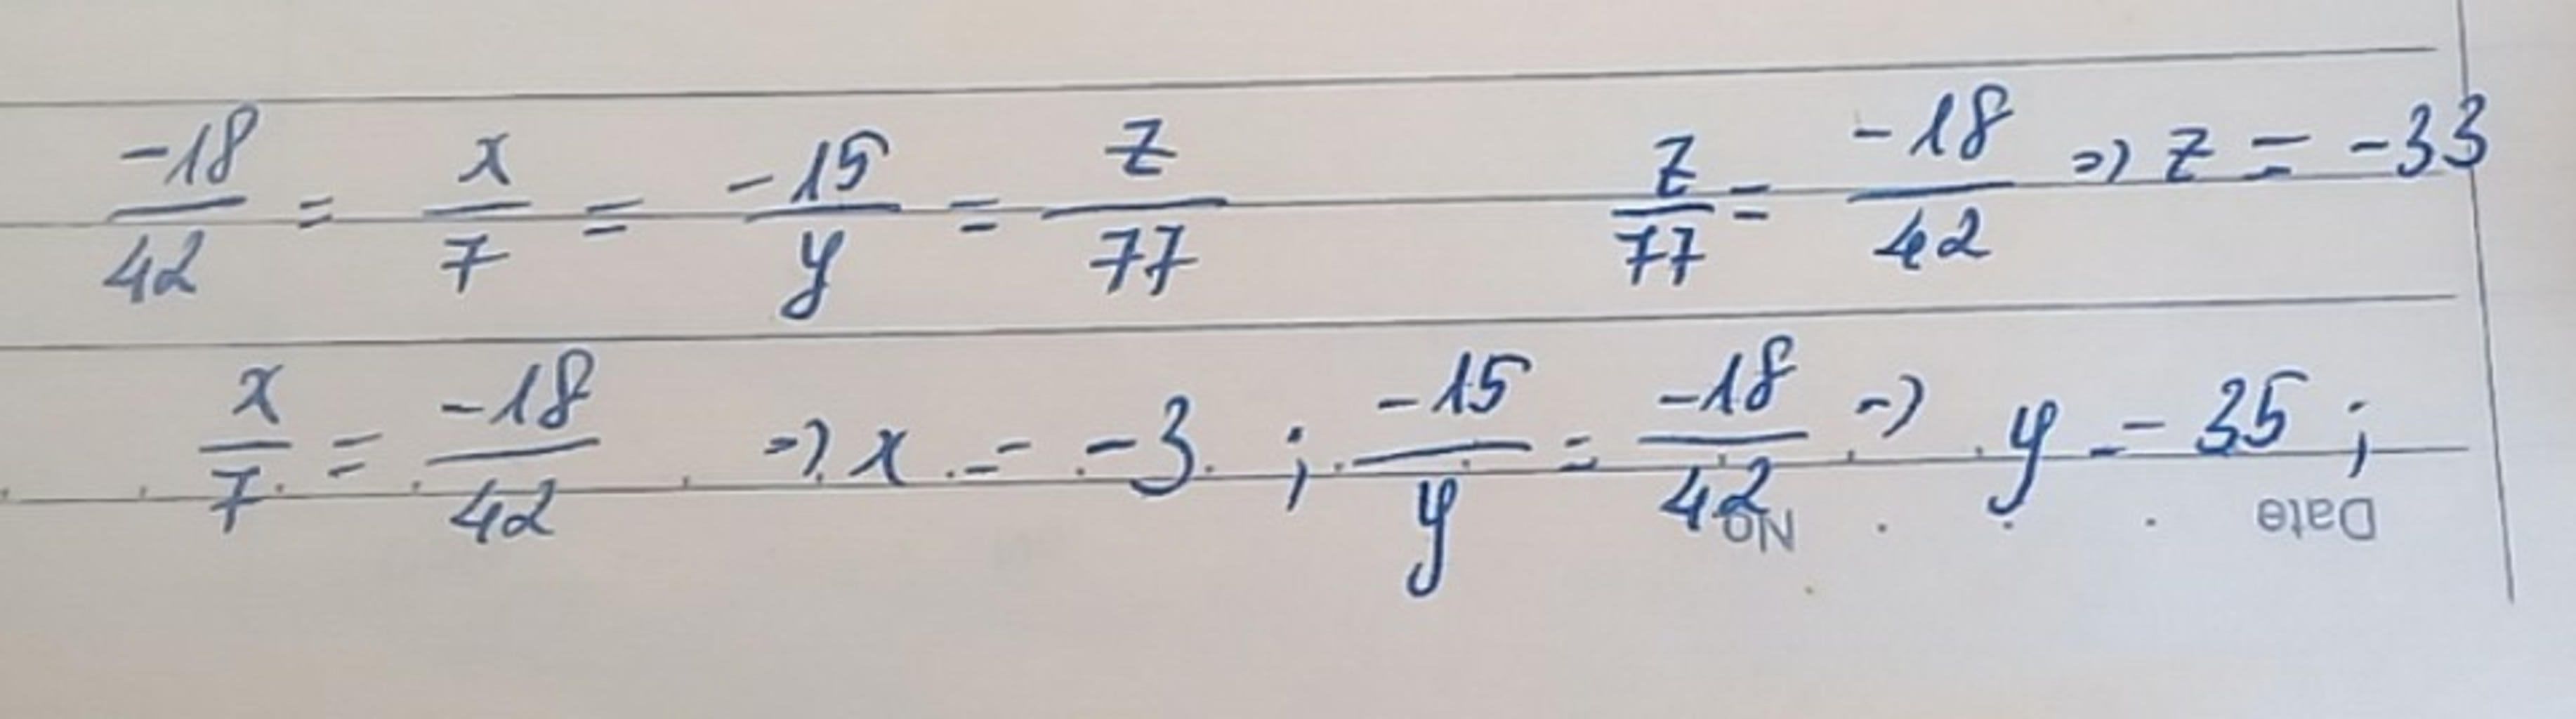 -18/42 = x/7 = -15/y = z/77    z/77 = -18/42 => z = -33
x/7 = -18/42 => x = -3 ; -15/y = -18/42 => y = 35 ;
No
Date